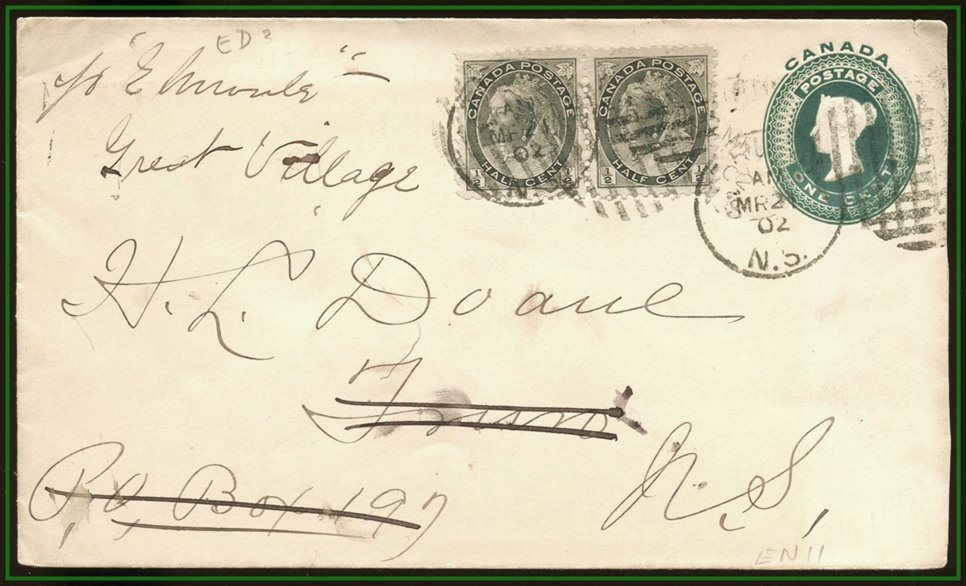 ED ?
c/o "Elmonte"
Great Village
H. L. Doane
Truro
P.O. Box 197
N.S.
CANADA POSTAGE
½ HALF CENT ½
CANADA POSTAGE
½ HALF CENT ½
AM
MR
02
N.
CANADA
POSTAGE
ONE CENT
AM
MR 2
02
N.S.
EN11